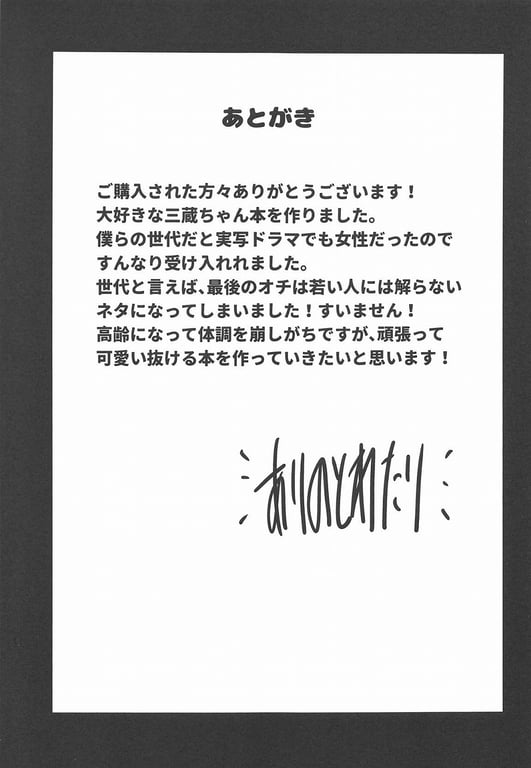 あとがき
ご購入された方々ありがとうございます！
大好きな三蔵ちゃん本を作りました。
僕らの世代だと実写ドラマでも女性だったので
すんなり受け入れれました。
世代と言えば、最後のオチは若い人には解らない
ネタになってしまいました！すいません！
高齢になって体調を崩しがちですが、頑張って
可愛い抜ける本を作っていきたいと思います！
ありのとわたり